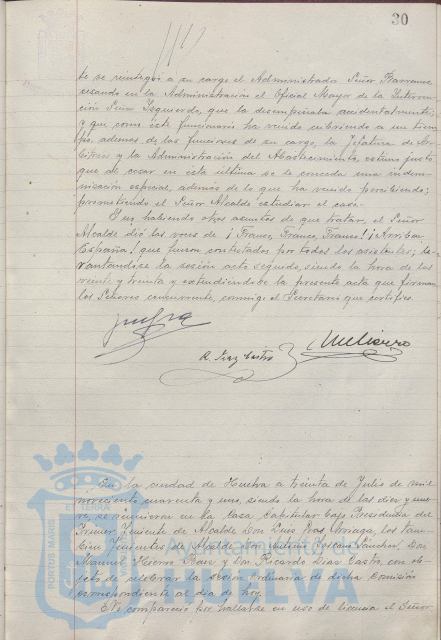 30
te se reintegró a su cargo el Administrador Señor
cesando en la Administración el Oficial Mayor de la Interven-
ción Señor Izquierdo, que la desempeñaba accidentalmente;
y que como este funcionario ha venido cubriendo a un tiem-
po, además de las funciones de su cargo, la Jefatura de Ar-
bitrios y la Administración del Abastecimiento, estima justo
que al cesar en esta última se le conceda una indem-
nización especial, además de lo que ha venido percibiendo;
prometiendo el Señor Alcalde estudiar el caso.
Y no habiendo otros asuntos de que tratar, el Señor
Alcalde dió las voces de ¡Franco, Franco, Franco! ¡Arriba
España! que fueron contestadas por todos los asistentes; le-
vantándose la sesión acto seguido, siendo la hora de las
veinte y treinta y extendiéndose la presente acta que firman
los Señores concurrentes, conmigo el Secretario que certifico.
R. Díaz Castro
En la ciudad de Huelva a treinta de Julio de mil
novecientos cuarenta y uno, siendo la hora de las diez y nue-
ve, se reunieron en la Casa Capitular bajo Presidencia del
Primer Teniente de Alcalde Don Luis los tam-
bién Tenientes de Alcalde Don Antonio Sánchez, Don
Manuel y Don Ricardo Díaz Castro, con ob-
jeto de celebrar la sesión Ordinaria de dicha Comisión
correspondiente al día de hoy.
No compareció por hallarse en uso de licencia el Señor
PORTUS MARIS ET TERRÆ
Ayuntamiento de
HUELVA